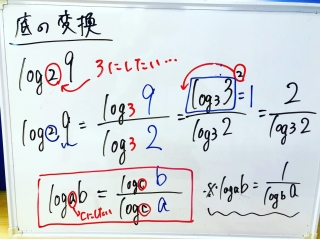 底の変換
log₂9 3にしたい…
log₂9 = log₃9/log₃2 = log₃3²/log₃2 = 2/log₃2
log₃3 = 1
logₐb = log꜀b/log꜀a
cにしたい
※ logₐb = 1/log_b a